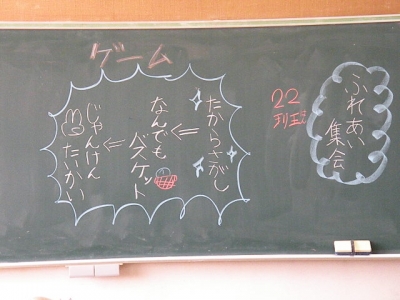 ふれあい
集会
22
班
ゲーム
たからさがし
なんでも
バスケット
じゃんけん
たたかい